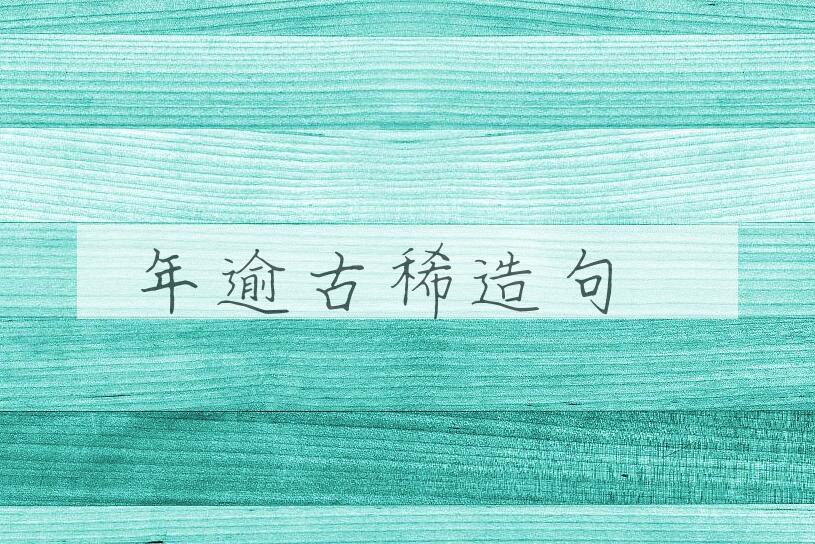 年逾古稀造句